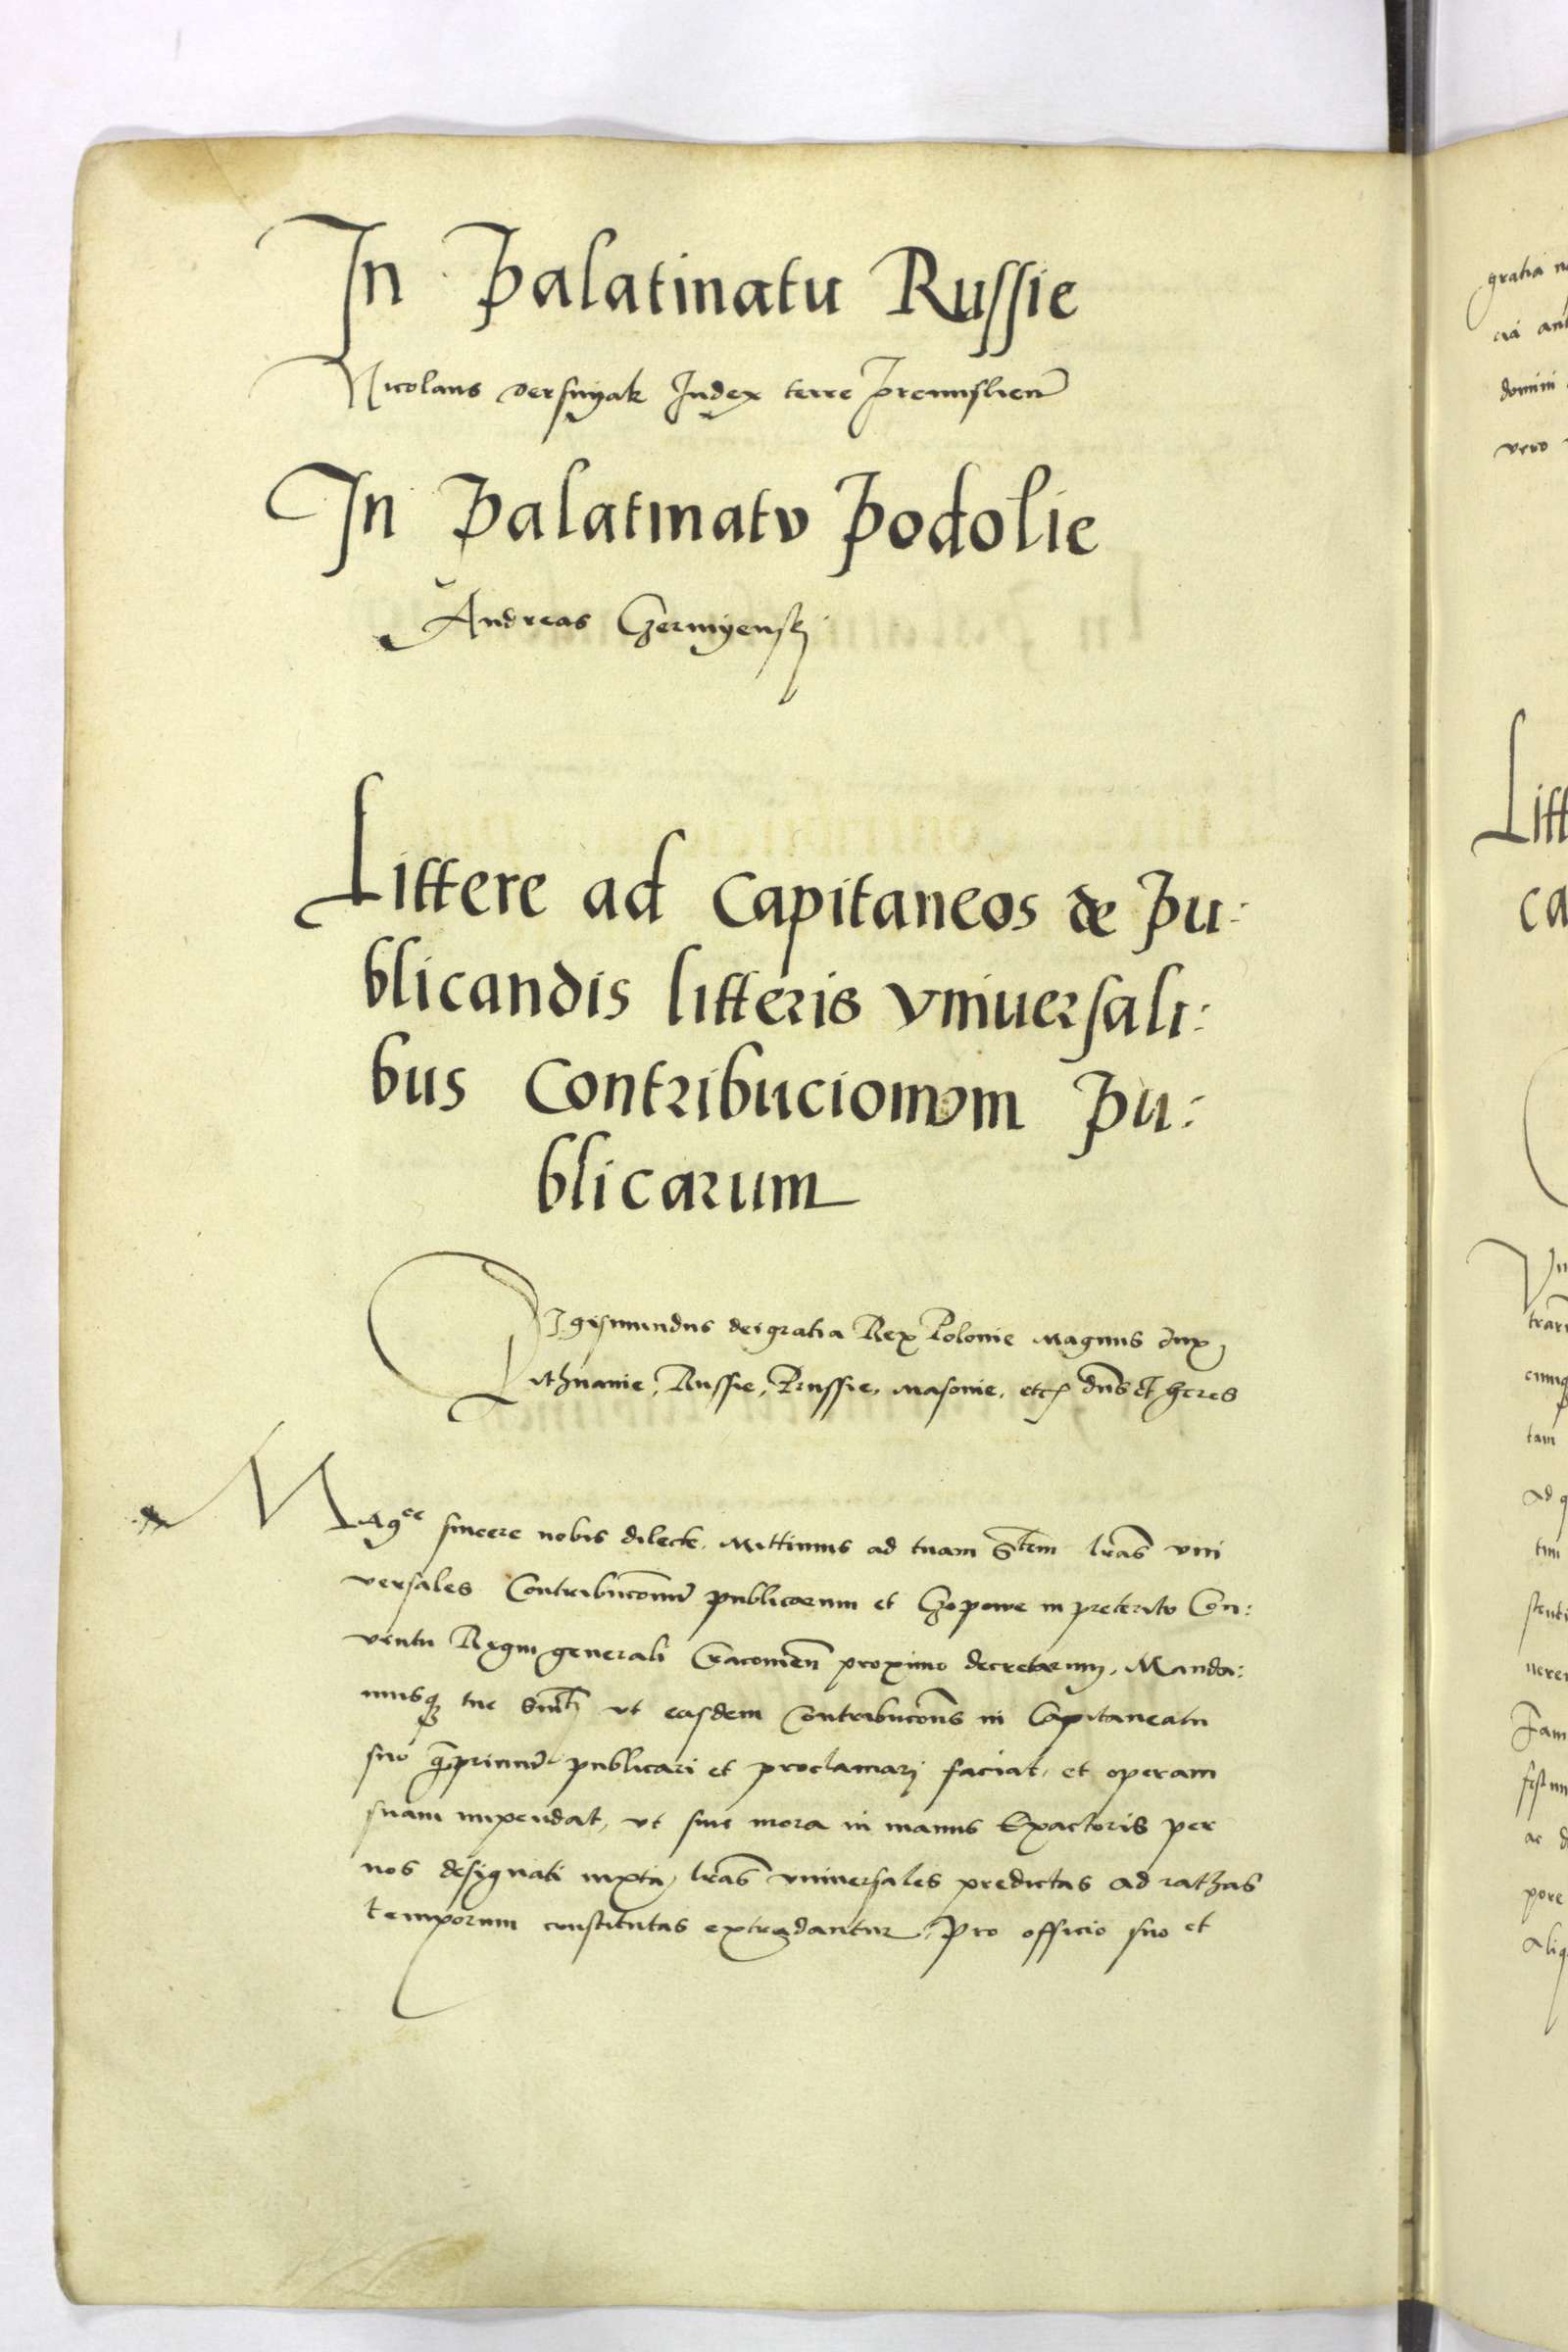 In Palatinatu Russie
Nicolaus dersnyak Iudex terre premislien
In Palatinatv Podolie
Andreas Czermyensky
Littere ad Capitaneos de Pu:
blicandis litteris vniuersali:
bus Contribucionvm Pu:
blicarum
Sigismundus dei gratia Rex Polonie Magnus dux
Lithuanie, Russie, Prussie, Masouie, etc. dns et heres
Magce sincere nobis dilecte. Mittimus ad tuam Stem lras vni
versales Contribuconum publicarum et Czopowe in preterito Con:
ventu Regni generali Cracouien proximo decretarum. Manda:
musq tue Sinti vt easdem Contribucons in Capitaneatu
suo publicari et proclamari faciat, et operam
suam impendat, vt sine mora in manus Exactoris per
nos designati iuxta lras vniuersales predictas ad rathas
temporum constitutas extradantur. Pro officio suo et
gratia
domini
vero
Litt
ca
tam
ad q
pore
aliq